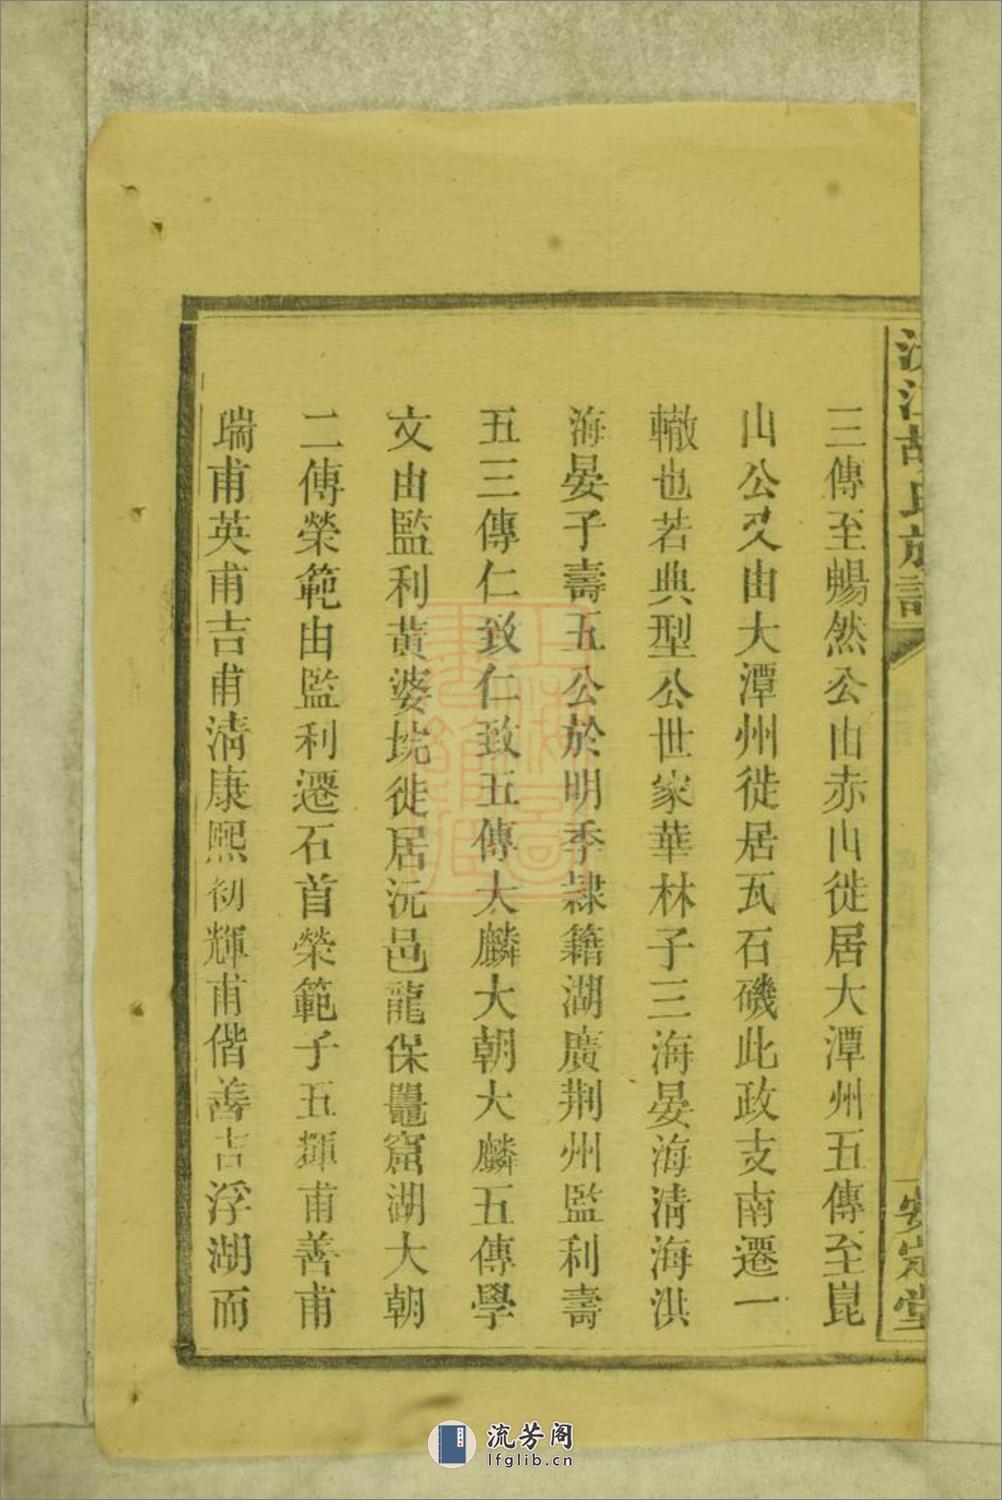 沅江胡氏族譜
安定堂
三傳至暢然公由赤山徙居大潭州五傳至崑
山公又由大潭州徙居瓦石磯此政支南遷一
轍也若典型公世家華林子三海晏海淸海洪
海晏子壽五公於明季隸籍湖廣荆州監利壽
五三傳仁致仁致五傳大麟大朝大麟五傳學
文由監利黃婆垸徙居沅邑龍保鼉窟湖大朝
二傳榮範由監利遷石首榮範子五輝甫善甫
瑞甫英甫吉甫淸康熙初輝甫偕善吉浮湖而
流芳阁
lfglib.cn